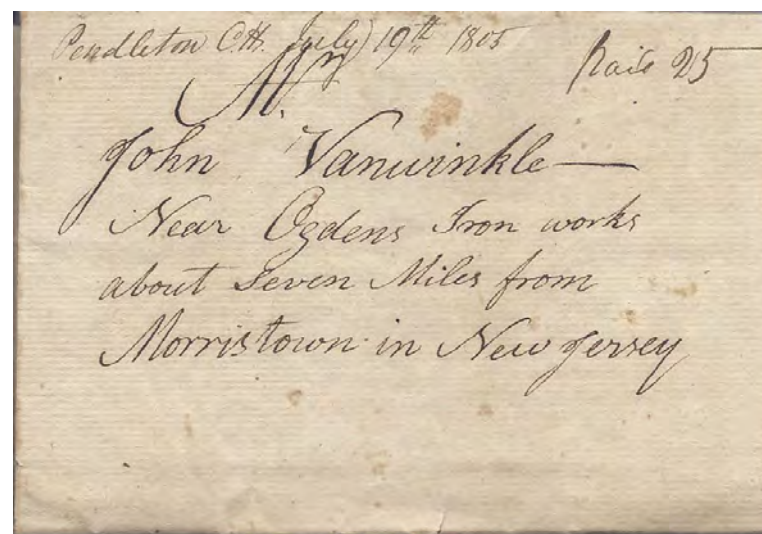 Pendleton C.H. July 19th 1805
Paid 25
Mr.
John Vanwinkle
Near Ogdens Iron works
about Seven Miles from
Morristown in New Jersey